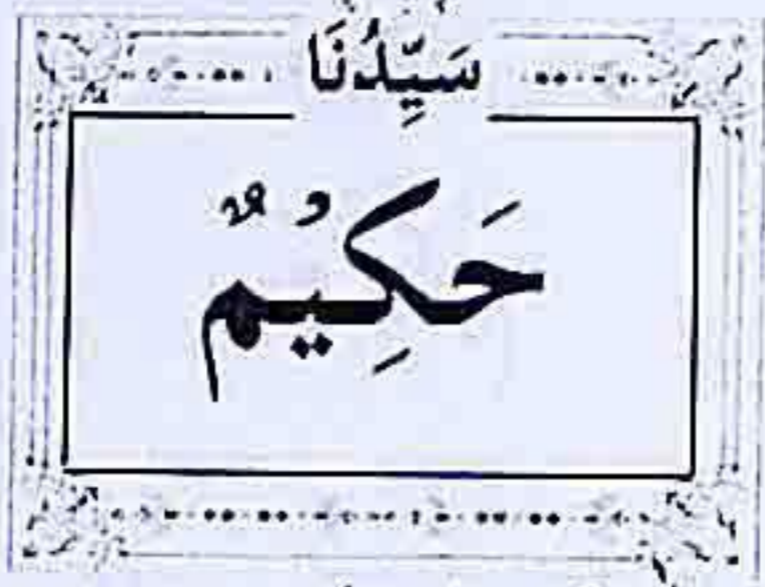 سَيِّدُنَا
حَكِيْمٌ